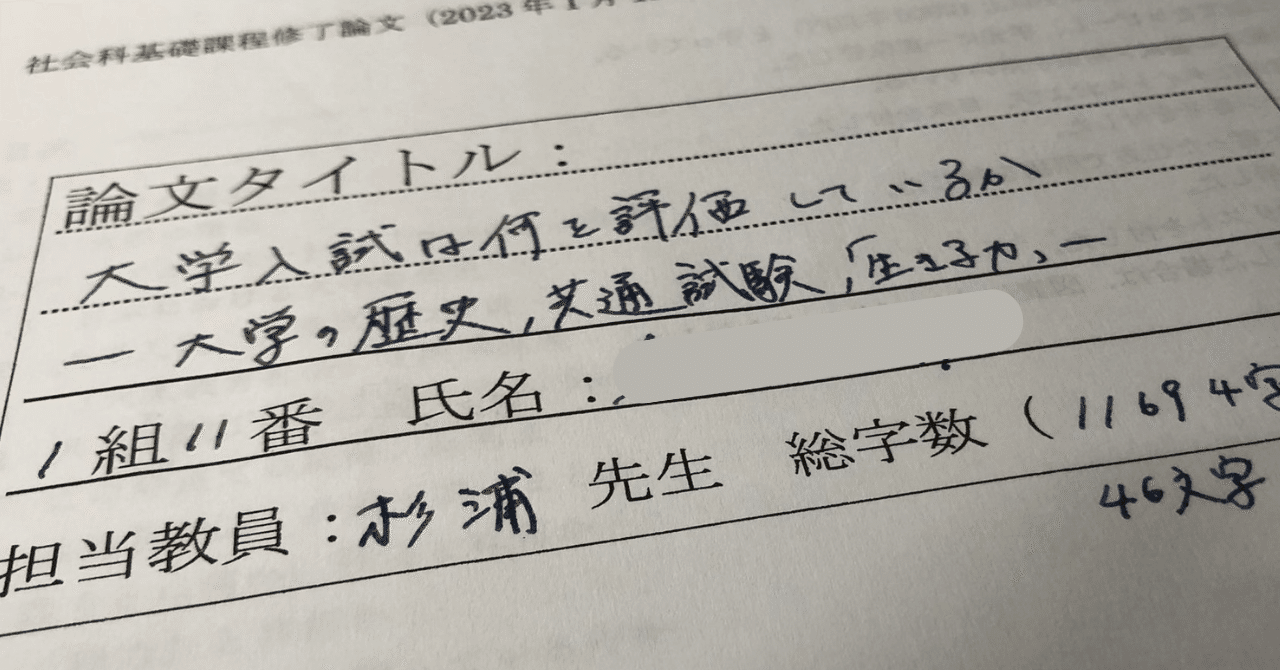 社会科基礎課程修了論文（2023年1月
論文タイトル：
大学入試は何を評価しているか
― 大学の歴史，共通試験，「生きる力」―
1組11番　氏名：
担当教員：杉浦　先生　総字数（11694字
46文字